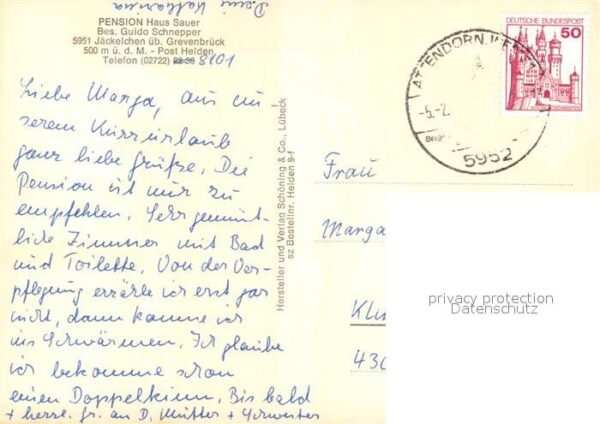 Deine Katharina
PENSION Haus Sauer
Bes. Guido Schnepper
5951 Jäckelchen üb. Grevenbrück
500 m ü. d. M. - Post Helden
Telefon (02722) 8101
Liebe Marga, aus un
serem Kurzurlaub
ganz liebe Grüße. Die
Pension ist nur zu
empfehlen. Sehr gemüt-
liche Zimmer mit Bad
und Toilette. Von der Ver-
pflegung erzähle ich erst gar
nicht, dann komme ich
ins Schwärmen. Ich glaube
ich bekomme schon
einen Doppelkinn. Bis bald
+ herzl. Gr. an D. Mutter + Schwester
Hersteller und Verlag Schöning & Co., Lübeck
sz Bestellnr. Helden 9-f
DEUTSCHE BUNDESPOST
50
ATTENDORN
-5.-2.
5952
Frau
Marga
Kli
430
privacy protection
Datenschutz